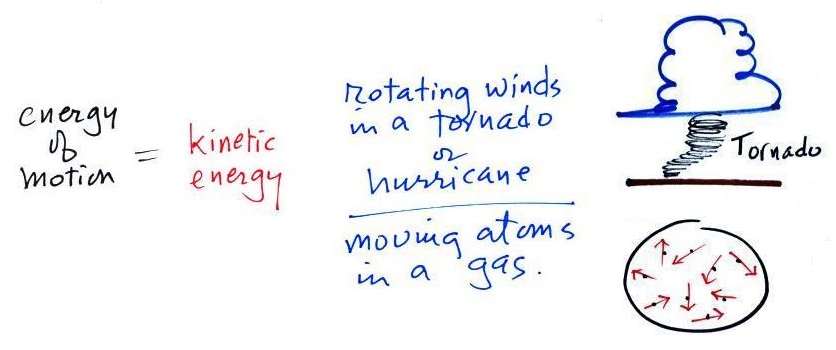 energy
of
motion
=
kinetic
energy
rotating winds
in a tornado
or
hurricane
moving atoms
in a gas.
Tornado